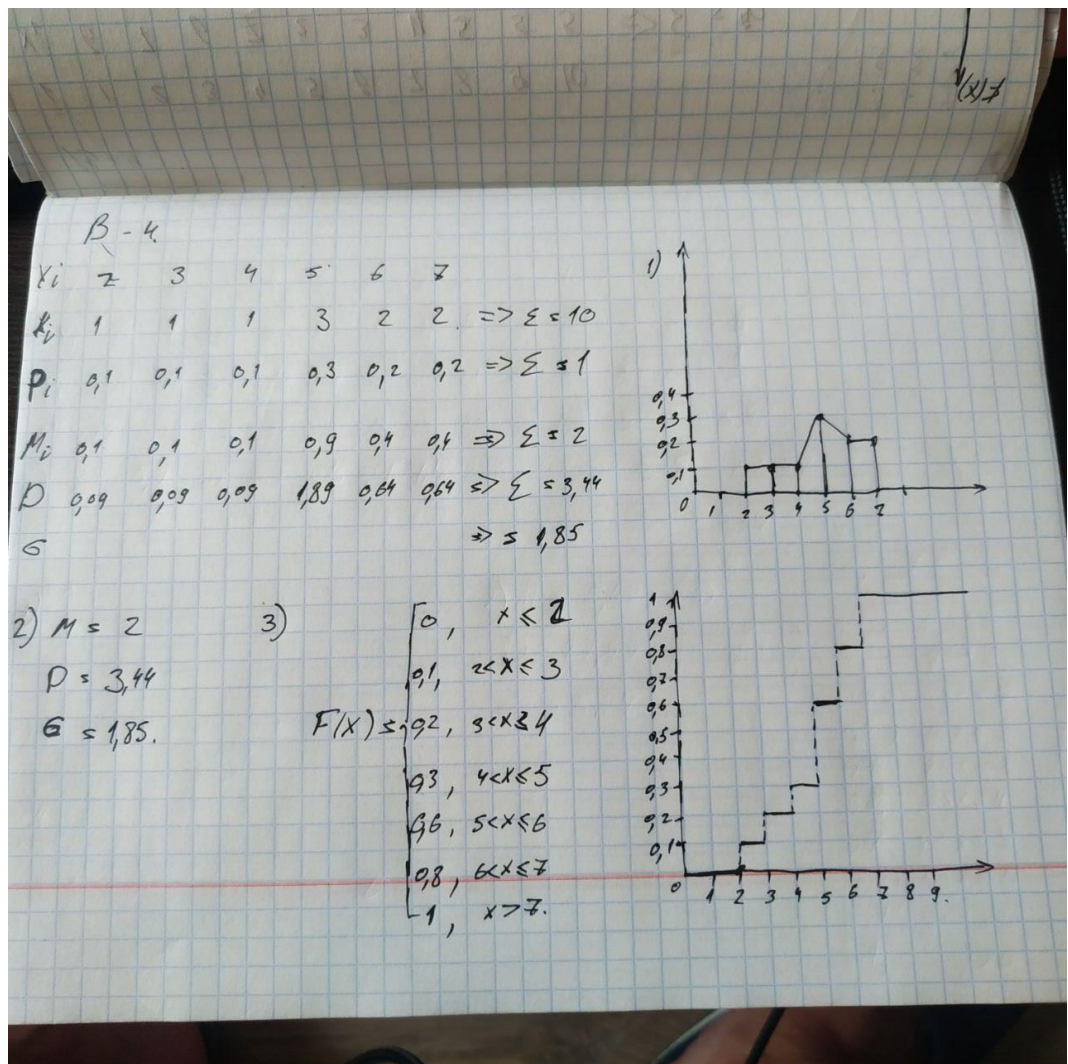 F(x)
В - 4.
Xi 2 3 4 5 6 7
Ki 1 1 1 3 2 2 => Σ = 10
Pi 0,1 0,1 0,1 0,3 0,2 0,2 => Σ = 1
Mi 0,1 0,1 0,1 0,9 0,4 0,4 => Σ = 2
D 0,09 0,09 0,09 1,89 0,64 0,64 => Σ = 3,44
σ => = 1,85
1)
0,4
0,3
0,2
0,1
0 1 2 3 4 5 6 7
2) M = 2
D = 3,44
σ = 1,85.
3)
F(x) =
0, x ≤ 2
0,1, 2<x≤ 3
0,2, 3<x≤4
0,3, 4<x≤5
0,6, 5<x≤6
0,8, 6<x≤7
1, x>7.
1
0,9
0,8
0,7
0,6
0,5
0,4
0,3
0,2
0,1
0 1 2 3 4 5 6 7 8 9.